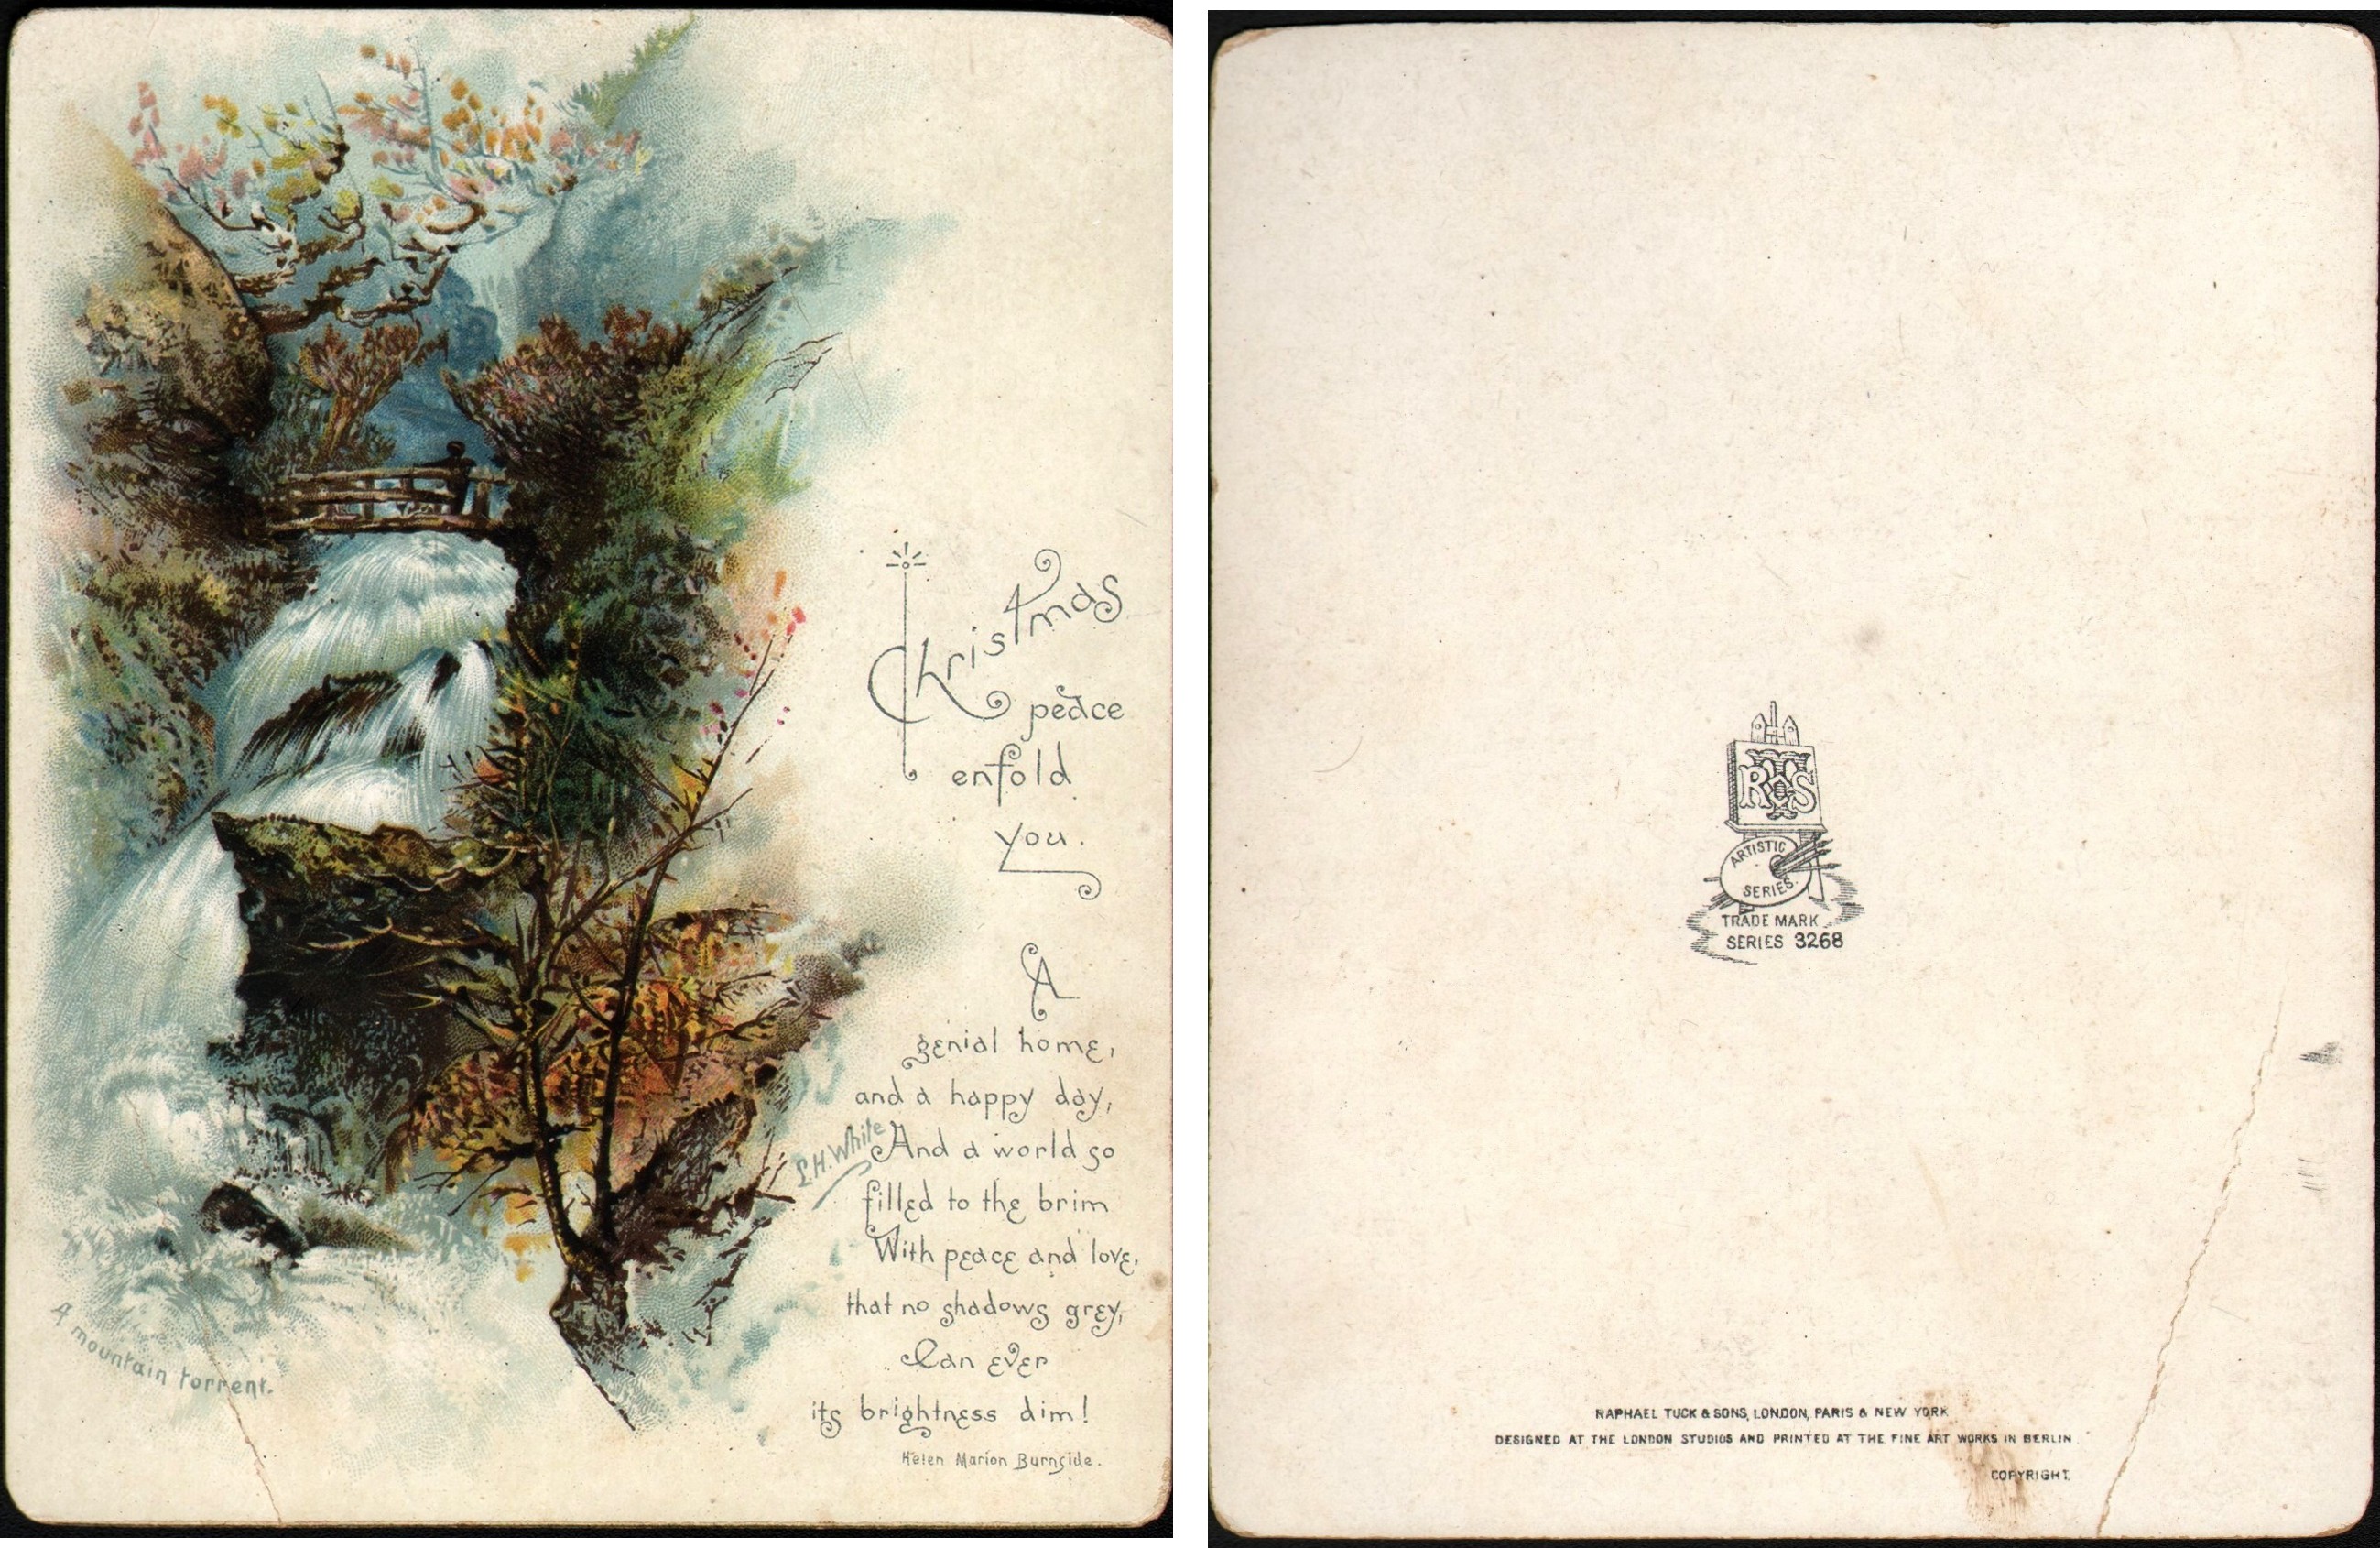 Christmas
peace
enfold
you.
A
genial home,
and a happy day,
And a world so
filled to the brim
With peace and love,
that no shadows grey,
Can ever
its brightness dim!
Helen Marion Burnside.
L.H. White
A mountain torrent.
RTS
&
ARTISTIC
SERIES.
TRADE MARK
SERIES 3268
RAPHAEL TUCK & SONS, LONDON, PARIS & NEW YORK
DESIGNED AT THE LONDON STUDIOS AND PRINTED AT THE FINE ART WORKS IN BERLIN
COPYRIGHT.